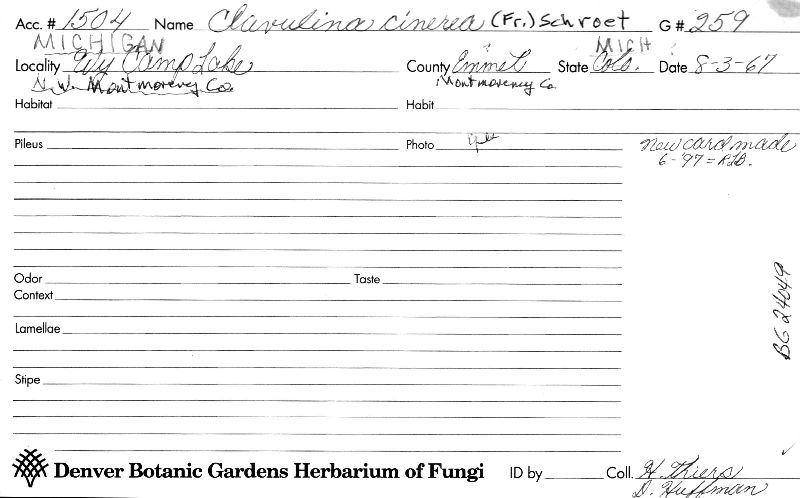 Acc. # 1504 Name Clavulina cinerea (Fr.) Schroet G # 259
MICHIGAN MICH
Locality Ely Camp Lake County Emmet State Colo. Date 8-3-67
N.W. Montmorency Co. Montmorency Co.
Habitat Habit
Pileus Photo new card made
6-'97 = RLB.
Odor Taste
Context
BG 24049
Lamellae
Stipe
Denver Botanic Gardens Herbarium of Fungi ID by Coll. H. Thiers
D. Huffman